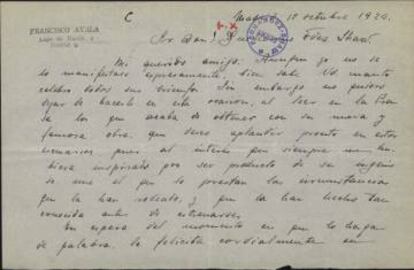 C
FRANCISCO AYALA
Madrid 10 octubre 1929.
Sr. Don
Mi querido amigo: Aunque yo no se
lo manifieste expresamente, bien sabe Vd. cuanto
celebro todos sus triunfos. Sin embargo no quiero
dejar de hacerlo en esta ocasión, al leer en la Pren
sa los que acaba de obtener con su nueva y
famosa obra, que deseo aplaudir pronto en estos
escenarios, pues al interés que siempre me hu
biera inspirado por ser producto de su ingenio
se une el que le prestan las circunstancias
que la han rodeado, y que la han hecho tan
conocida antes de estrenarse.
En espera del momento en que lo haga
de palabra, le felicita cordialmente su